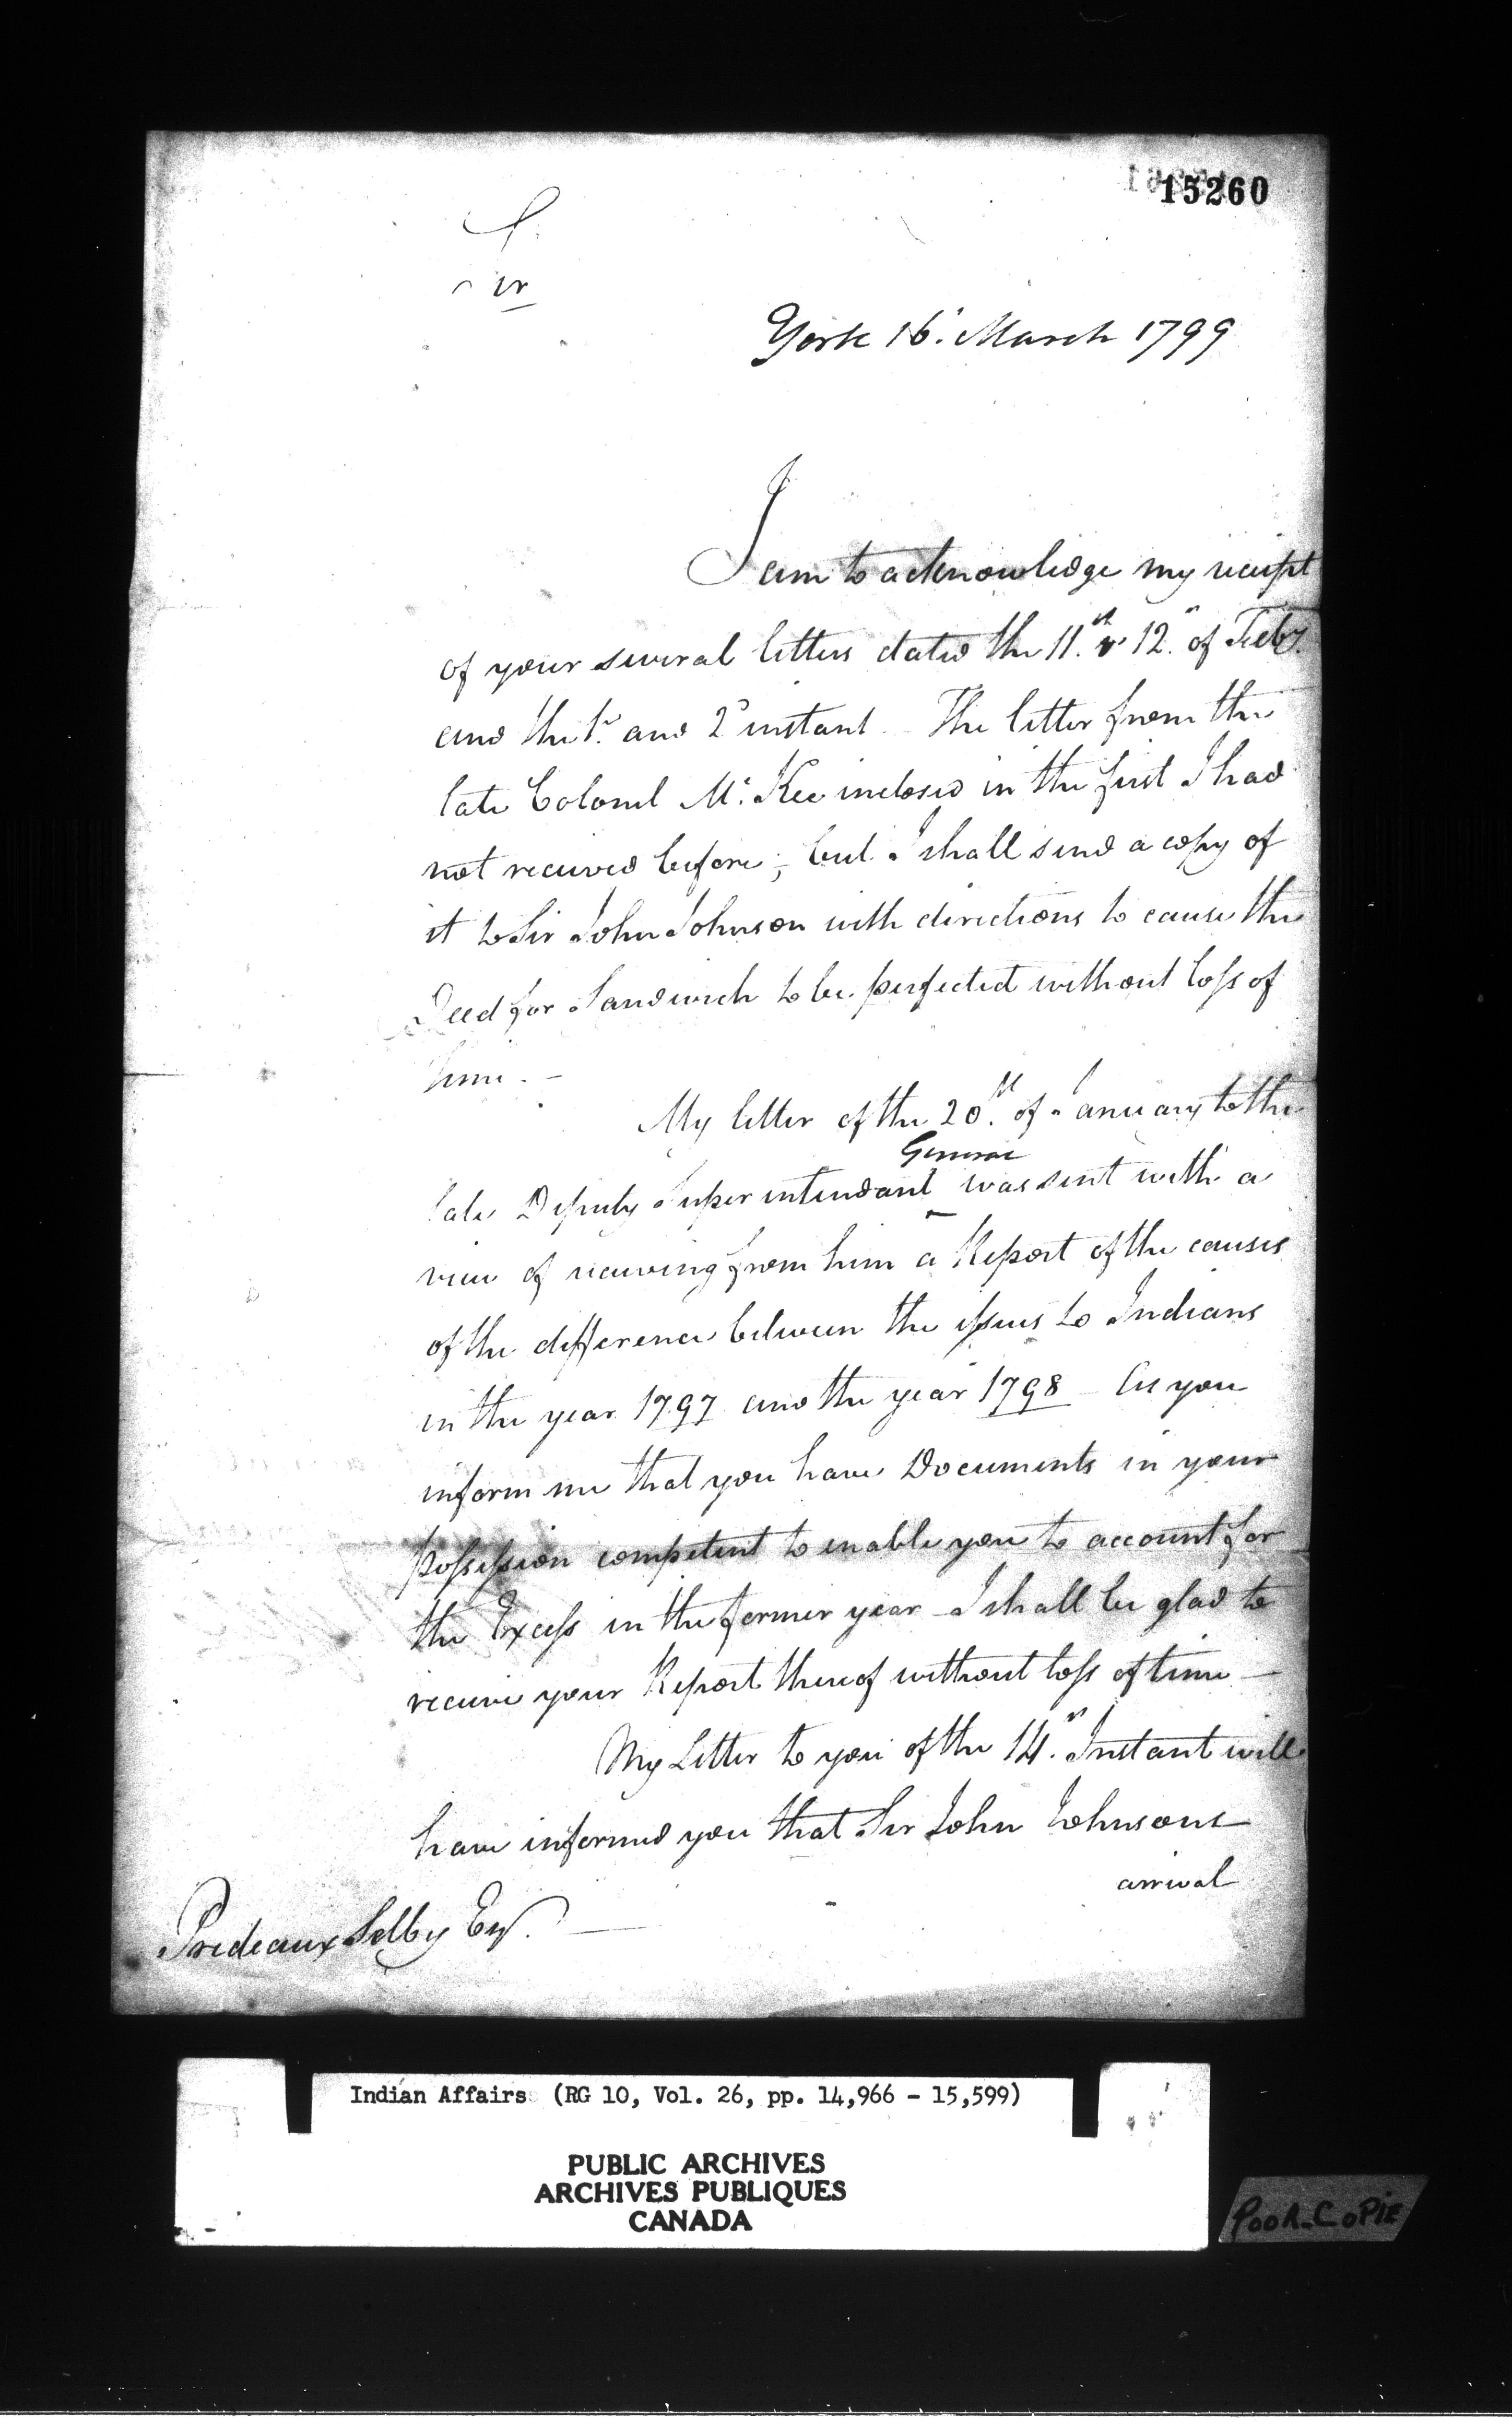 15260
Sir
York 16. March 1799
I am to acknowledge my receipt
of your several letters dated the 11.th & 12.th of Feby.
and the 1.st and 2d instant. The letter from the
late Colonel Mc.Kee inclosed in the first I had
not received before; but I shall send a copy of
it to Sir John Johnson with directions to cause the
Deed for Sandwich to be perfected without loſs of
time. –
My letter of the 20.th of January to the
General
late Deputy Superintendant was sent with a
view of receiving from him a Report of the causes
of the difference between the iſsues to Indians
in the year 1797 and the year 1798 – As you
inform me that you have Documents in your
poſseſsion competent to enable you to account for
the Exceſs in the former year – I shall be glad to
receive your Report thereof without loſs of time –
My Letter to you of the 14.th Instant will
have informed you that Sir John Johnsons
arrival
Prideaux Selby Esqr. –
Indian Affairs (RG 10, Vol. 26, pp. 14,966 - 15,599)
PUBLIC ARCHIVES
ARCHIVES PUBLIQUES
CANADA
POOR-COPIE